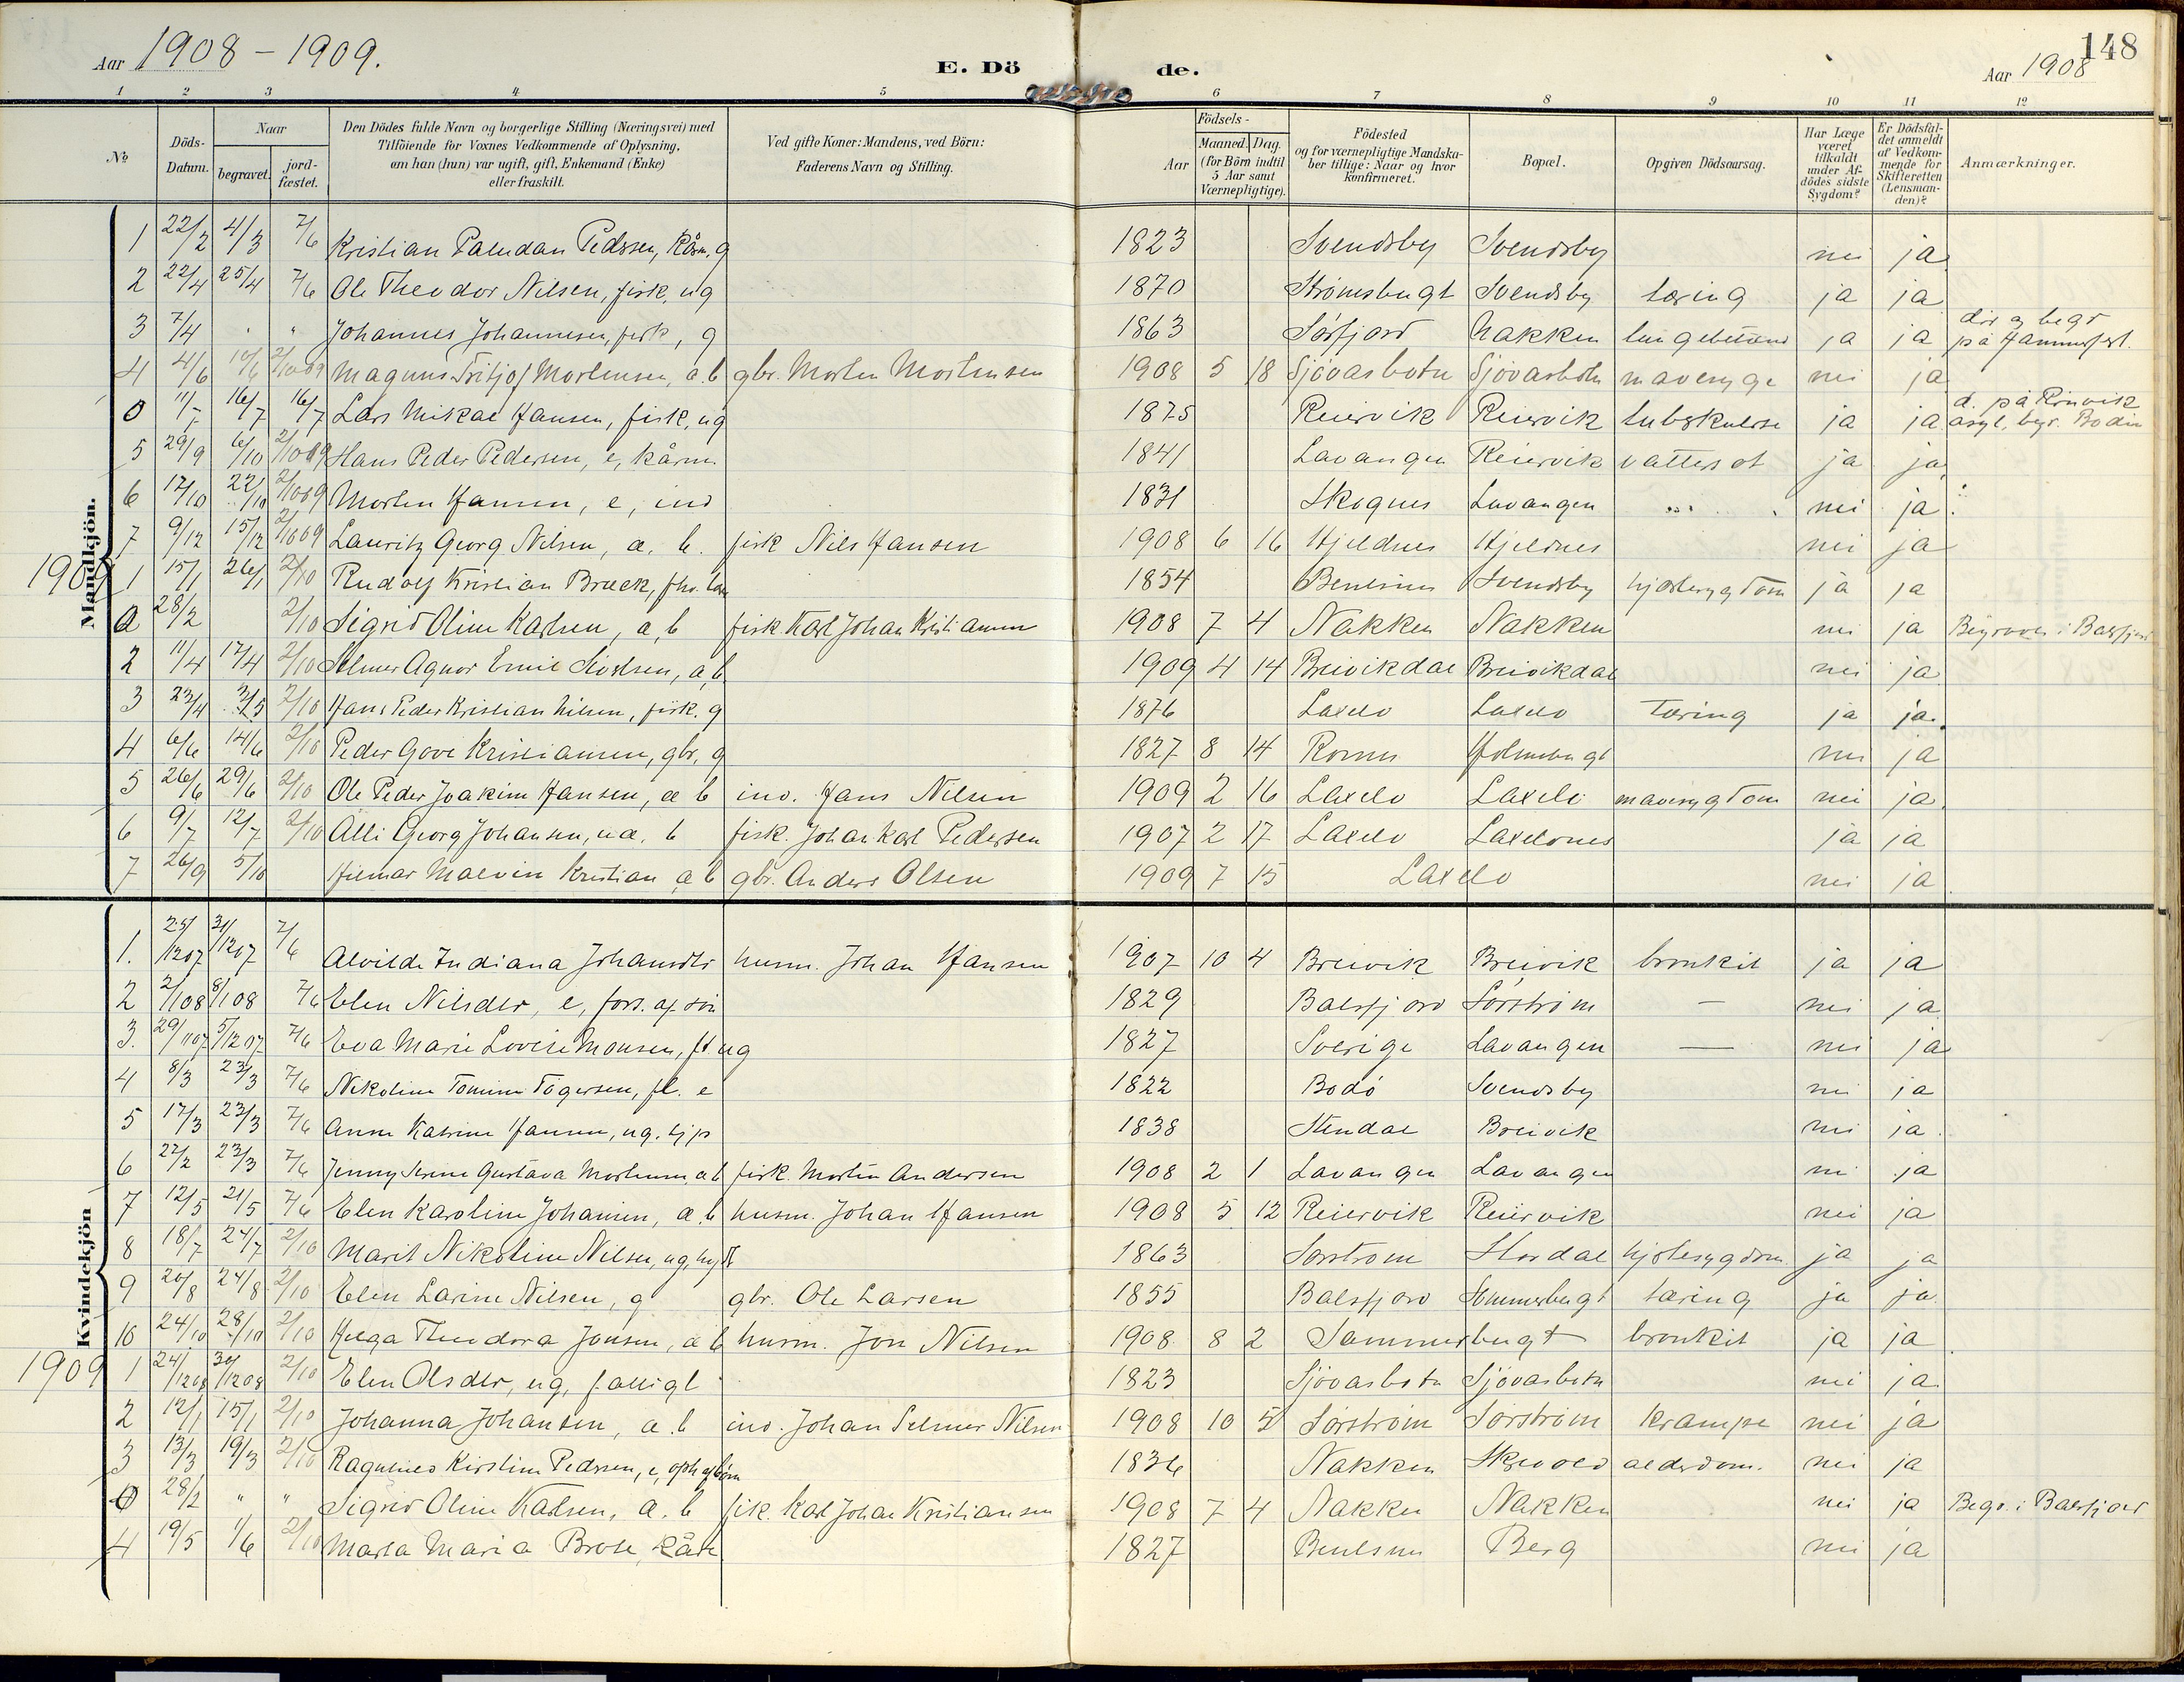 Aar 1908 - 1909.
E. Dö
de.
Aar 1908
148
1 2 3 4 5 6 7 8 9 10 11 12
No
Döds-Datum.
Naar
begravet.
jord-fæstet.
Den Dödes fulde Navn og borgerlige Stilling (Næringsvei) med
Tilföiende for Voxnes Vedkommende af Oplysning,
om han (hun) var ugift, gift, Enkemand (Enke)
eller fraskilt.
Ved gifte Koner: Mandens, ved Börn:
Faderens Navn og Stilling.
Födsels-
Aar
Maaned. Dag.
(for Börn indtil
5 Aar samt
Værnepligtige).
Födested
og for værnepligtige Mandska-
ber tillige: Naar og hvor
konfirmeret.
Bopæl.
Opgiven Dödsaarsag.
Har Læge
været
tilkaldt
under Af-
dödes sidste
Sygdom?
Er Dödsfal-
det anmeldt
af Vedkom-
mende for
Skifteretten
(Lensman-
den)?
Anmærkninger.
Mandkjön.
1 22/2 4/3 7/6 Kristian Paludan Pedersen, kårm, g 1823 Svendsby Svendsby nei ja
2 22/4 25/4 7/6 Ole Theodor Nilsen, fisk, ug 1870 Strømsbugt Svendsby tæring ja ja
3 7/4 " Johannes Johannesen, fisk, g 1863 Sørfjord Nakken lungebetænd ja ja dør og begr på Hammerfest.
4 4/6 10/6 2/10 09 Magnus Fritjof Mortensen, a. b gbr. Morten Mortensen 1908 5 18 Sjøvasbotn Sjøvasbotn mavesyge nei ja
0 11/7 16/7 16/7 Lars Mikal Hansen, fisk, ug 1875 Reiervik Reiervik tubskulose ja ja d. på Rønvik asyl, begr. Bodin
5 29/9 6/10 2/10 09 Hans Peder Pedersen, e, kårm. 1841 Lavangen Reiervik vattersot ja ja
6 17/10 22/10 2/10 09 Morten Hansen, e, ind 1831 Skognes Lavangen " nei ja
7 9/12 15/12 2/10 09 Lauritz Georg Nilsen, a. b. fisk Nils Hansen 1908 6 16 Hjeldnes Hjeldnes nei ja
1909 1 15/1 26/1 2/10 Rudolf Kristian Breck, 1854 Benlsnes Svendsby hjertesygdom ja ja
0 28/2 2/10 Sigrid Oline Karlsen, a, b fisk. Karl Johan Kristiansen 1908 7 4 Nakken Nakken nei ja Begraven i Balsfjord
2 11/4 17/4 2/10 Selmer Agnor Emil Sivertsen, a, b 1909 4 14 Breivikdal Breivikdal nei ja
3 23/4 3/5 2/10 Hans Peder Kristian Nilsen, fisk. g 1876 Lakselv Lakselv Tæring ja ja.
4 6/6 14/6 2/10 Peder Gove Kristiansen, gbr, g 1827 8 14 Holmebugt nei ja
5 26/6 29/6 2/10 Ole Peder Joakim Hansen, a b ind. Hans Nilsen 1909 2 16 Laxelv Laxelv mavesygdom nei ja
6 9/7 12/7 2/10 Alli Georg Johansen, ua. b fisk. Johan Karl Pedersen 1907 2 17 Laxelv Laxelvnes ja ja
7 26/9 5/10 Hilmar Malvin Kristian a b gbr. Anders Olsen 1909 7 15 Laxelv nei ja
Kvindekjön
1. 25/12 07 31/12 07 7/6 Alvilde Indiana Johansdtr husm. Johan Hansen 1907 10 4 Breivik Breivik bronkit ja ja
2 2/1 08 8/1 08 7/6 Elen Nilsdtr, e, fors. af søn 1829 Balsfjord Sørstrøm — nei ja
3. 29/11 07 5/12 07 7/6 Eva Marie Lovise Monsen, fl ug 1827 Sverige Lavangen — nei ja
4 8/3 23/3 7/6 Nikoline Tomine Tøgersen, fl. e 1822 Bodø Svendsby nei ja
5 17/3 23/3 7/6 Anne Katrine Hansen, ug. tjp 1838 Stendal Breivik nei ja
6 22/2 23/3 7/6 Jenny Serine Gustava Mortensen, a b fisk. Morten Andersen 1908 2 1 Lavangen Lavangen nei ja
7 12/5 21/5 7/6 Elen Karoline Johansen, a. b husm. Johan Hansen 1908 5 12 Reiervik Reiervik nei ja
8 18/7 24/7 2/10 Marit Nikoline Nilsen, ug, 1863 Sørstrøm Stordal hjertesygdom ja ja
9 20/8 24/8 2/10 Elen Larine Nilsen, g gbr. Ole Larsen 1855 Balsfjord Sommerbugt tæring ja ja
10 24/10 28/10 2/10 Helga Theodora Jonsen, a b husm. Jon Nilsen 1908 8 2 Sammerbugt bronkit ja ja
1909 1 24/12 08 30/12 08 2/10 Elen Olsdtr, ug, fattigl 1823 Sjøvasbotn Sjøvasbotn nei ja
2 12/1 15/1 2/10 Johanna Johansen, a. b ind. Johan Selmer Nilsen 1908 10 5 Sørstrøm Sørstrøm krampe nei ja
3 13/3 19/3 2/10 Kirstine Pedersen, e, oph af børn 1836 Nakken alderdom. nei ja
0 28/2 " " Sigrid Oline Karlsen, a. b fisk. Karl Johan Kristiansen 1908 7 4 Nakken Nakken nei ja Begr. i Balsfjord
4 19/5 1/6 2/10 Marta Maria Brose, kåre 1827 Benlsnes Berg nei ja